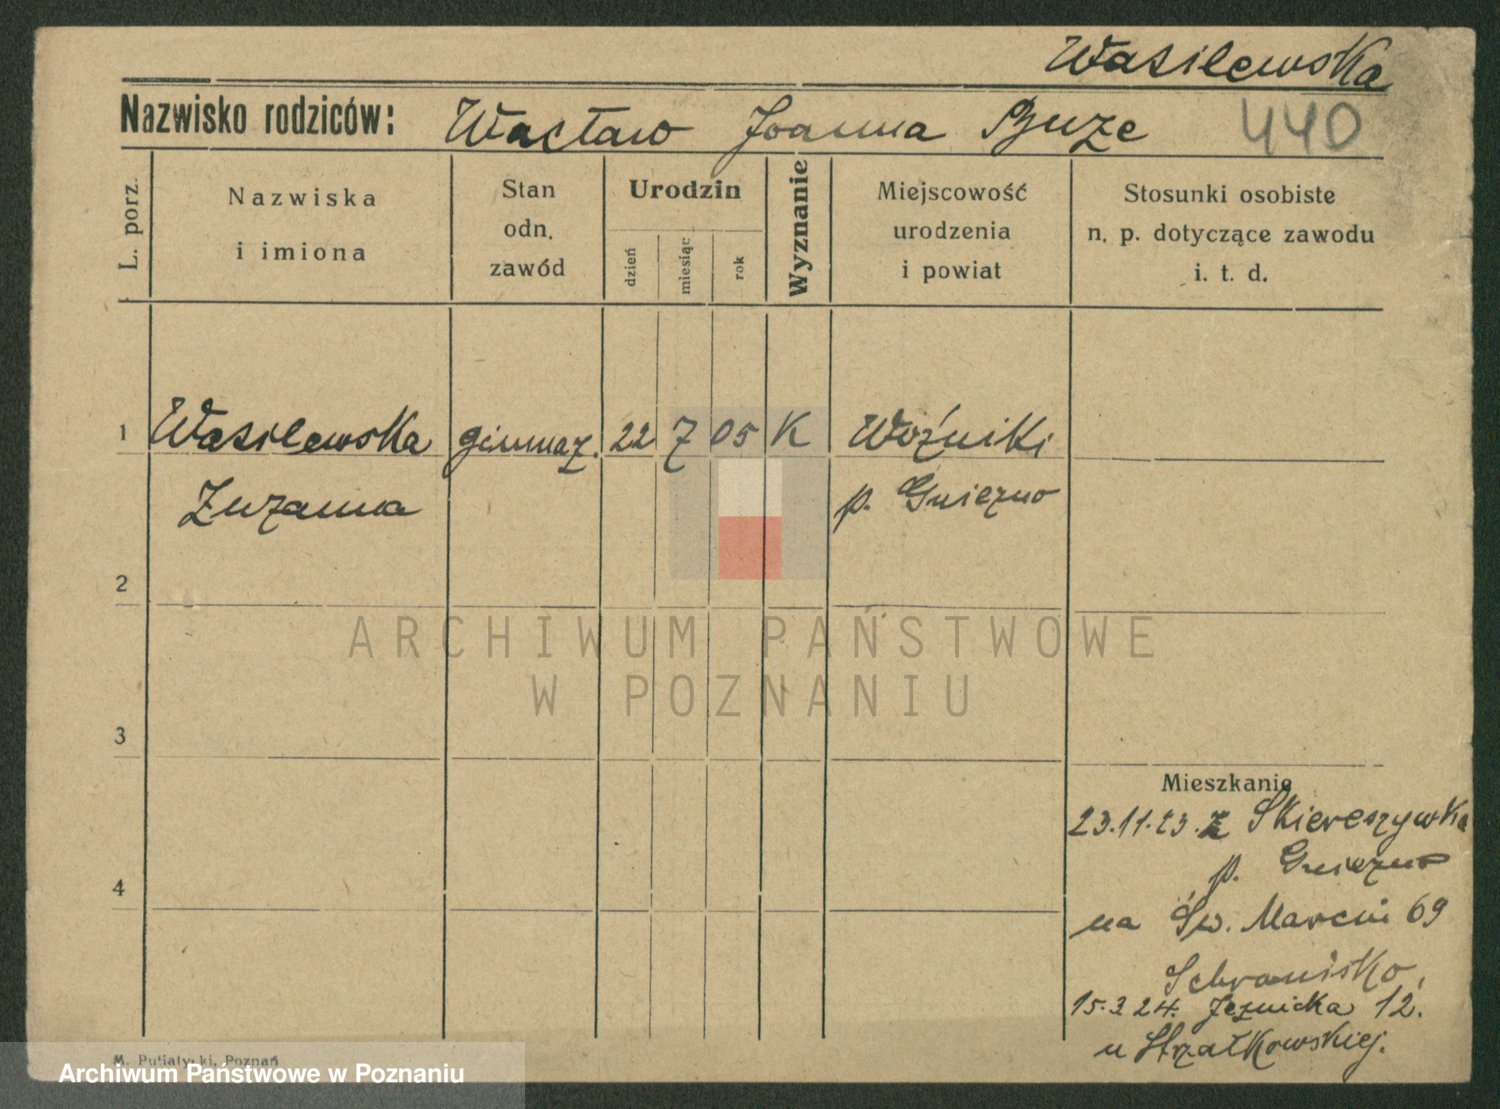 Wasilewska
Nazwisko rodziców: Wacław Joanna
440
L. porz.
Nazwiska
i imiona
Stan
odn.
zawód
Urodzin
dzień
miesiąc
rok
Wyznanie
Miejscowość
urodzenia
i powiat
Stosunki osobiste
n. p. dotyczące zawodu
i. t. d.
1 Wasilewska gimnaz. 22 7 05 K Woźniki
Zuzanna p. Gniezno
2
3
4
Mieszkanie
23.11.23. z Skiereszywka
p. Gniezno
na Św. Marcin 69
Schronisko,
15.3.24. Jeznicka 12.
u Strzałkowskiej.
M. Putiatycki, Poznań
ARCHIWUM PAŃSTWOWE
W POZNANIU
Archiwum Państwowe w Poznaniu